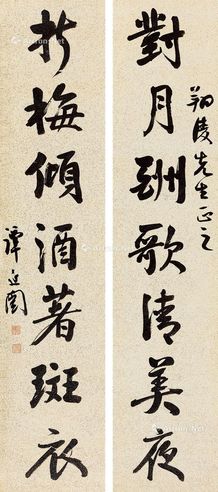 翔陵先生正之
對月酬歌清美夜
折梅傾酒著斑衣
譚延闓